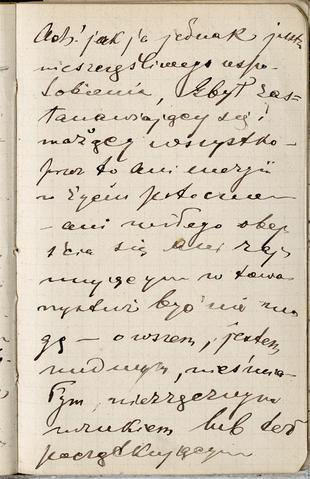 Ach! jak ja jednak jestem
nieszczęśliwego uspo-
sobienia, Zbyt zas-
tanawiający się i
marzący wszystko-
przez to ani energii
w życiu potocznem
- ani miłego obej
ścia się ani zaj
mującym w towa
rzystwie być nie mo
gę - owszem, jestem
nudnym, nieśmia-
łym, niezręcznym
mrukiem lub też